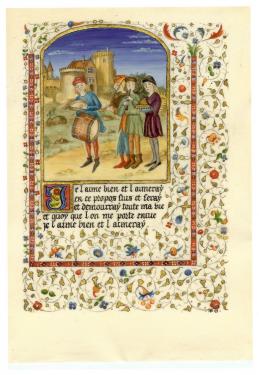 Je laime bien et laimeray
en ce propos suis et seray
et demourray toute ma vie
et quoy que lon me porte envie
je laime bien et laimeray